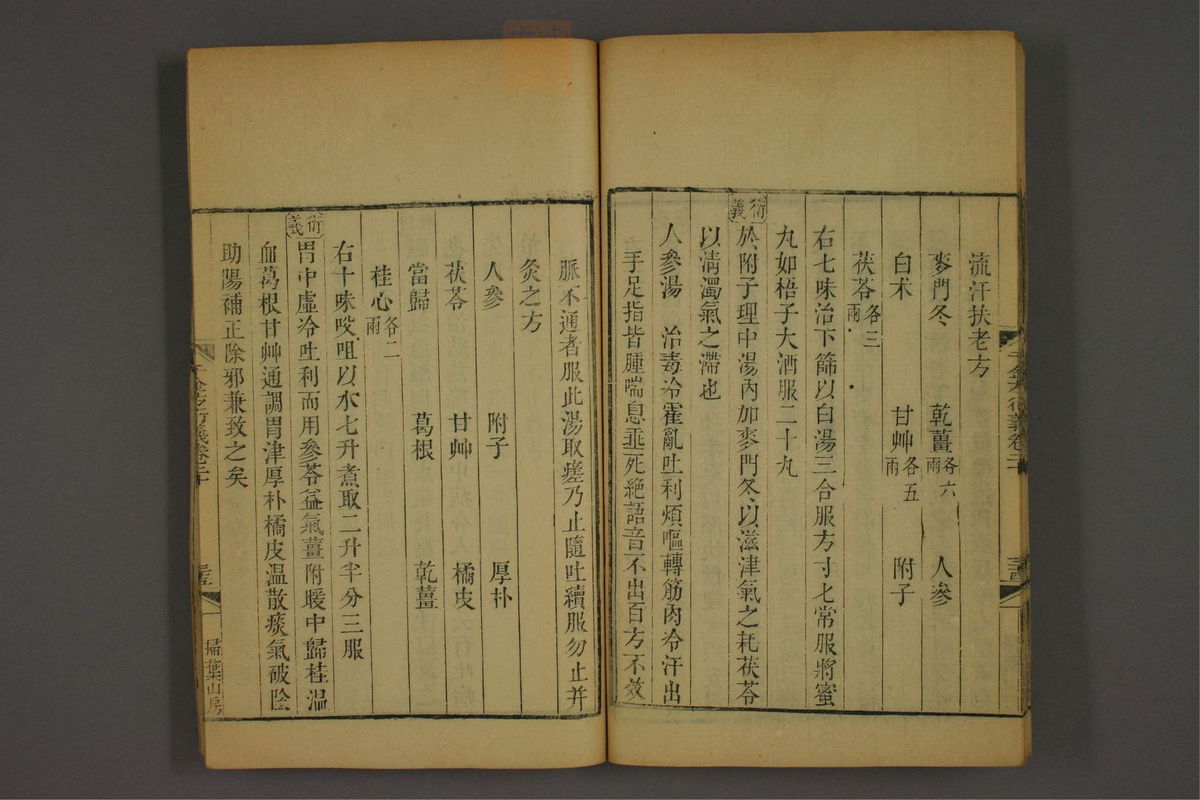 流汗扶老方
麥門冬　乾薑各六兩　人參
白朮　甘艸各五兩　附子
茯苓各三兩
右七味治下篩以白湯三合服方寸匕常服將蜜
丸如梧子大酒服二十九
衍義
於附子理中湯內加麥門冬以滋津氣之耗茯苓
以清濁氣之滯也
人參湯　治毒冷霍亂吐利煩嘔轉筋肉冷汗出
手足指皆腫喘息垂死絕語音不出百方不效
脈不通者服此湯取瘥乃止隨吐續服勿止并
灸之方
人參　附子　厚朴
茯苓　甘艸　橘皮
當歸　葛根　乾薑
桂心各二兩
右十味㕮咀以水七升煮取二升半分三服
衍義
胃中虛冷吐利而用參苓益氣薑附暖中歸桂溫
血葛根甘艸通調胃津厚朴橘皮溫散痰氣破陰
助陽補正除邪兼致之矣
千金方衍義卷二十
掃葉山房